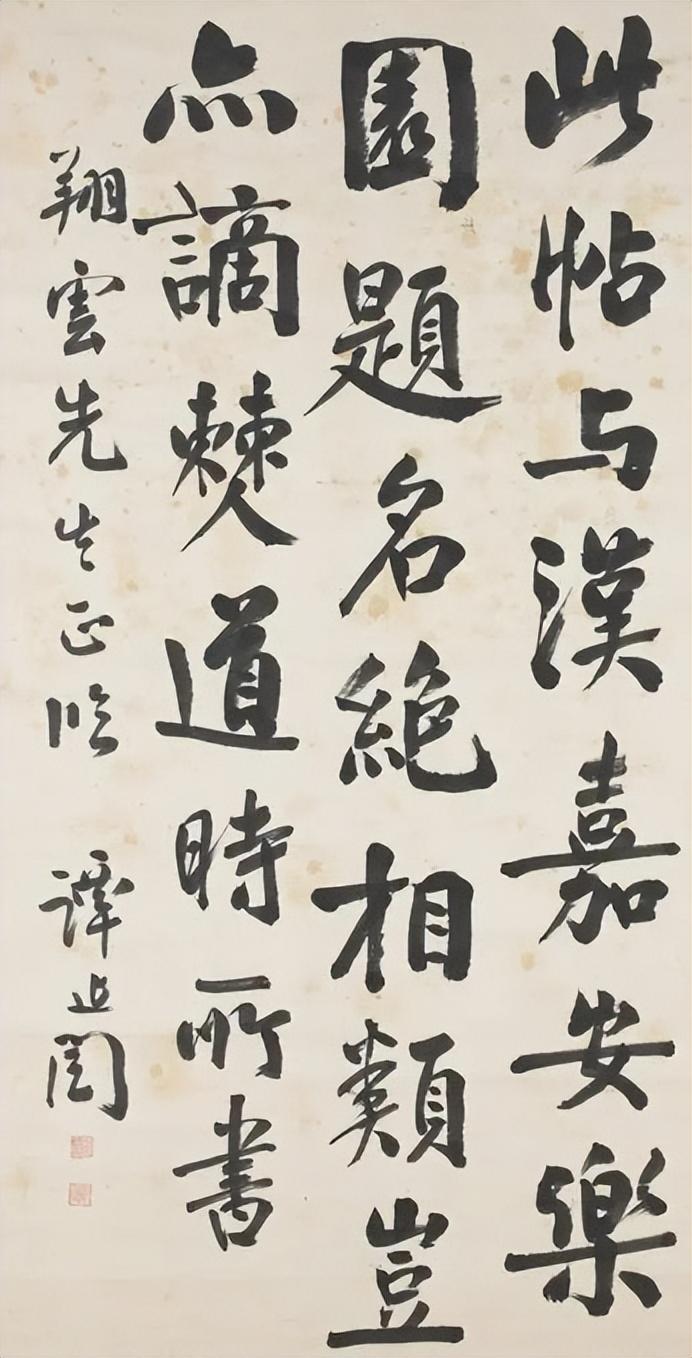 此帖与漢嘉安樂
園題名絕相類豈
亦謫僰道時所書
翔雲先生正臨 譚延闓